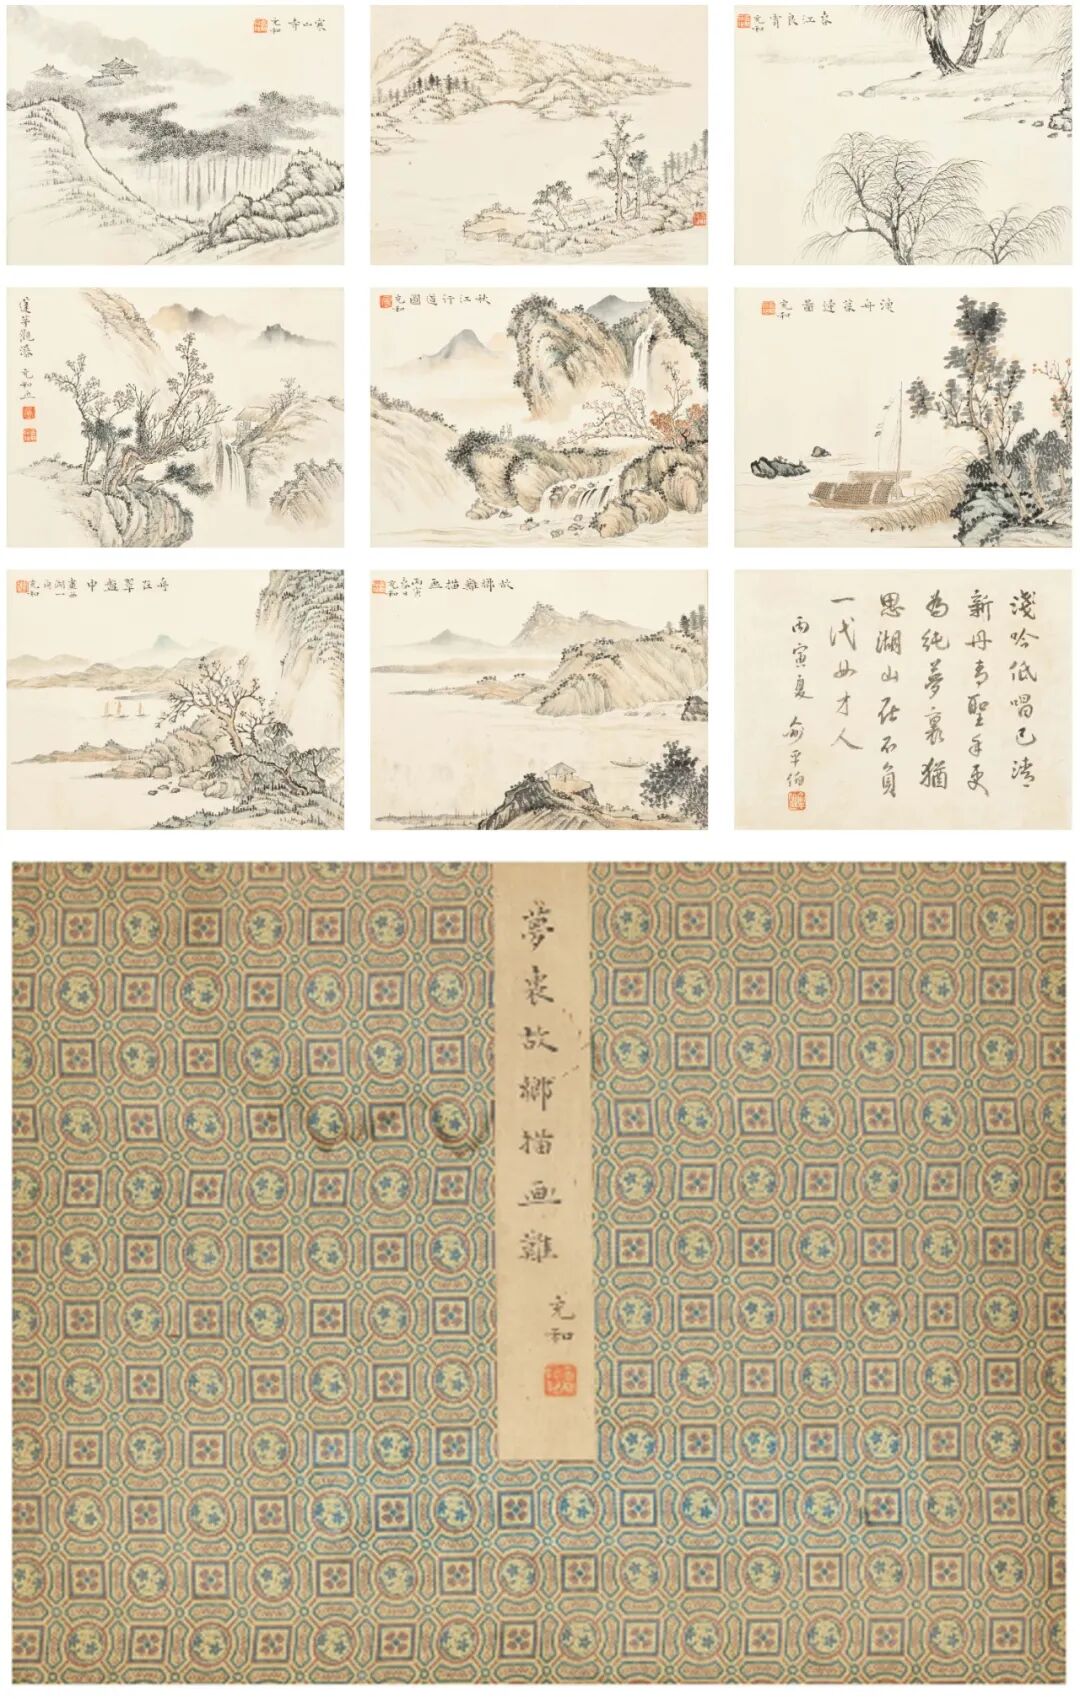 寒山寺
充和
春江良宵
充和
觀瀑 充和
秋江行道圖
充和
充和
舟在翠盤中
畫西
湖一
充和
故鄉難描画
丙寅
春日
充和
淺吟低唱已清
新丹青聖手更
為純夢裏猶
思湖山在不負
一代女才人
丙寅夏 俞平伯
夢裏故鄉描画難
充和